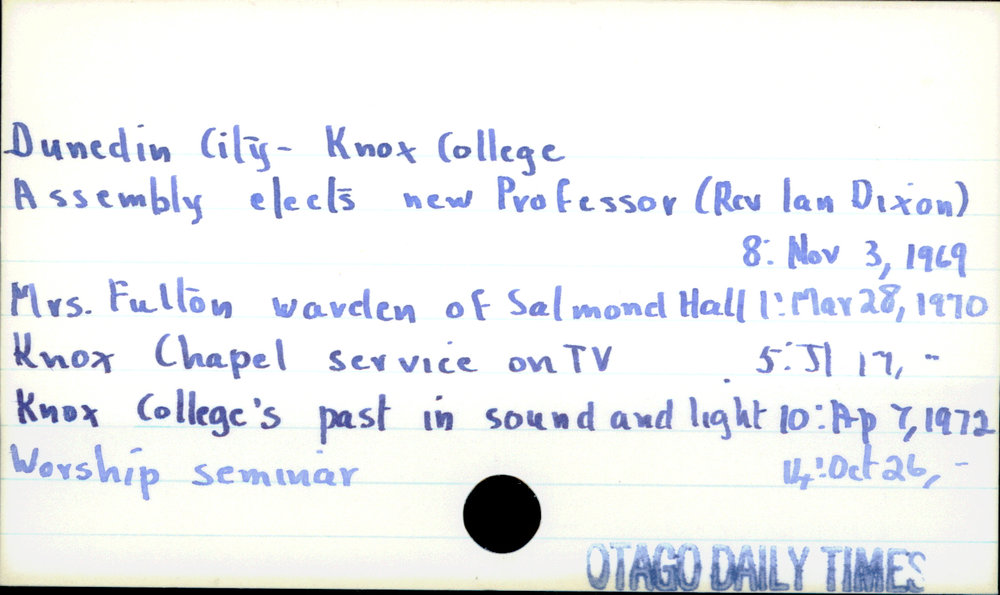 Dunedin City - Knox College
Assembly elects new Professor (Rev Ian Dixon)
8: Nov 3, 1969
Mrs. Fulton warden of Salmond Hall 1: Mar 28, 1970
Knox Chapel service on TV 5: Jl 17, -
Knox College's past in sound and light 10: Ap 7, 1972
Worship seminar 14: Oct 26, -
OTAGO DAILY TIMES